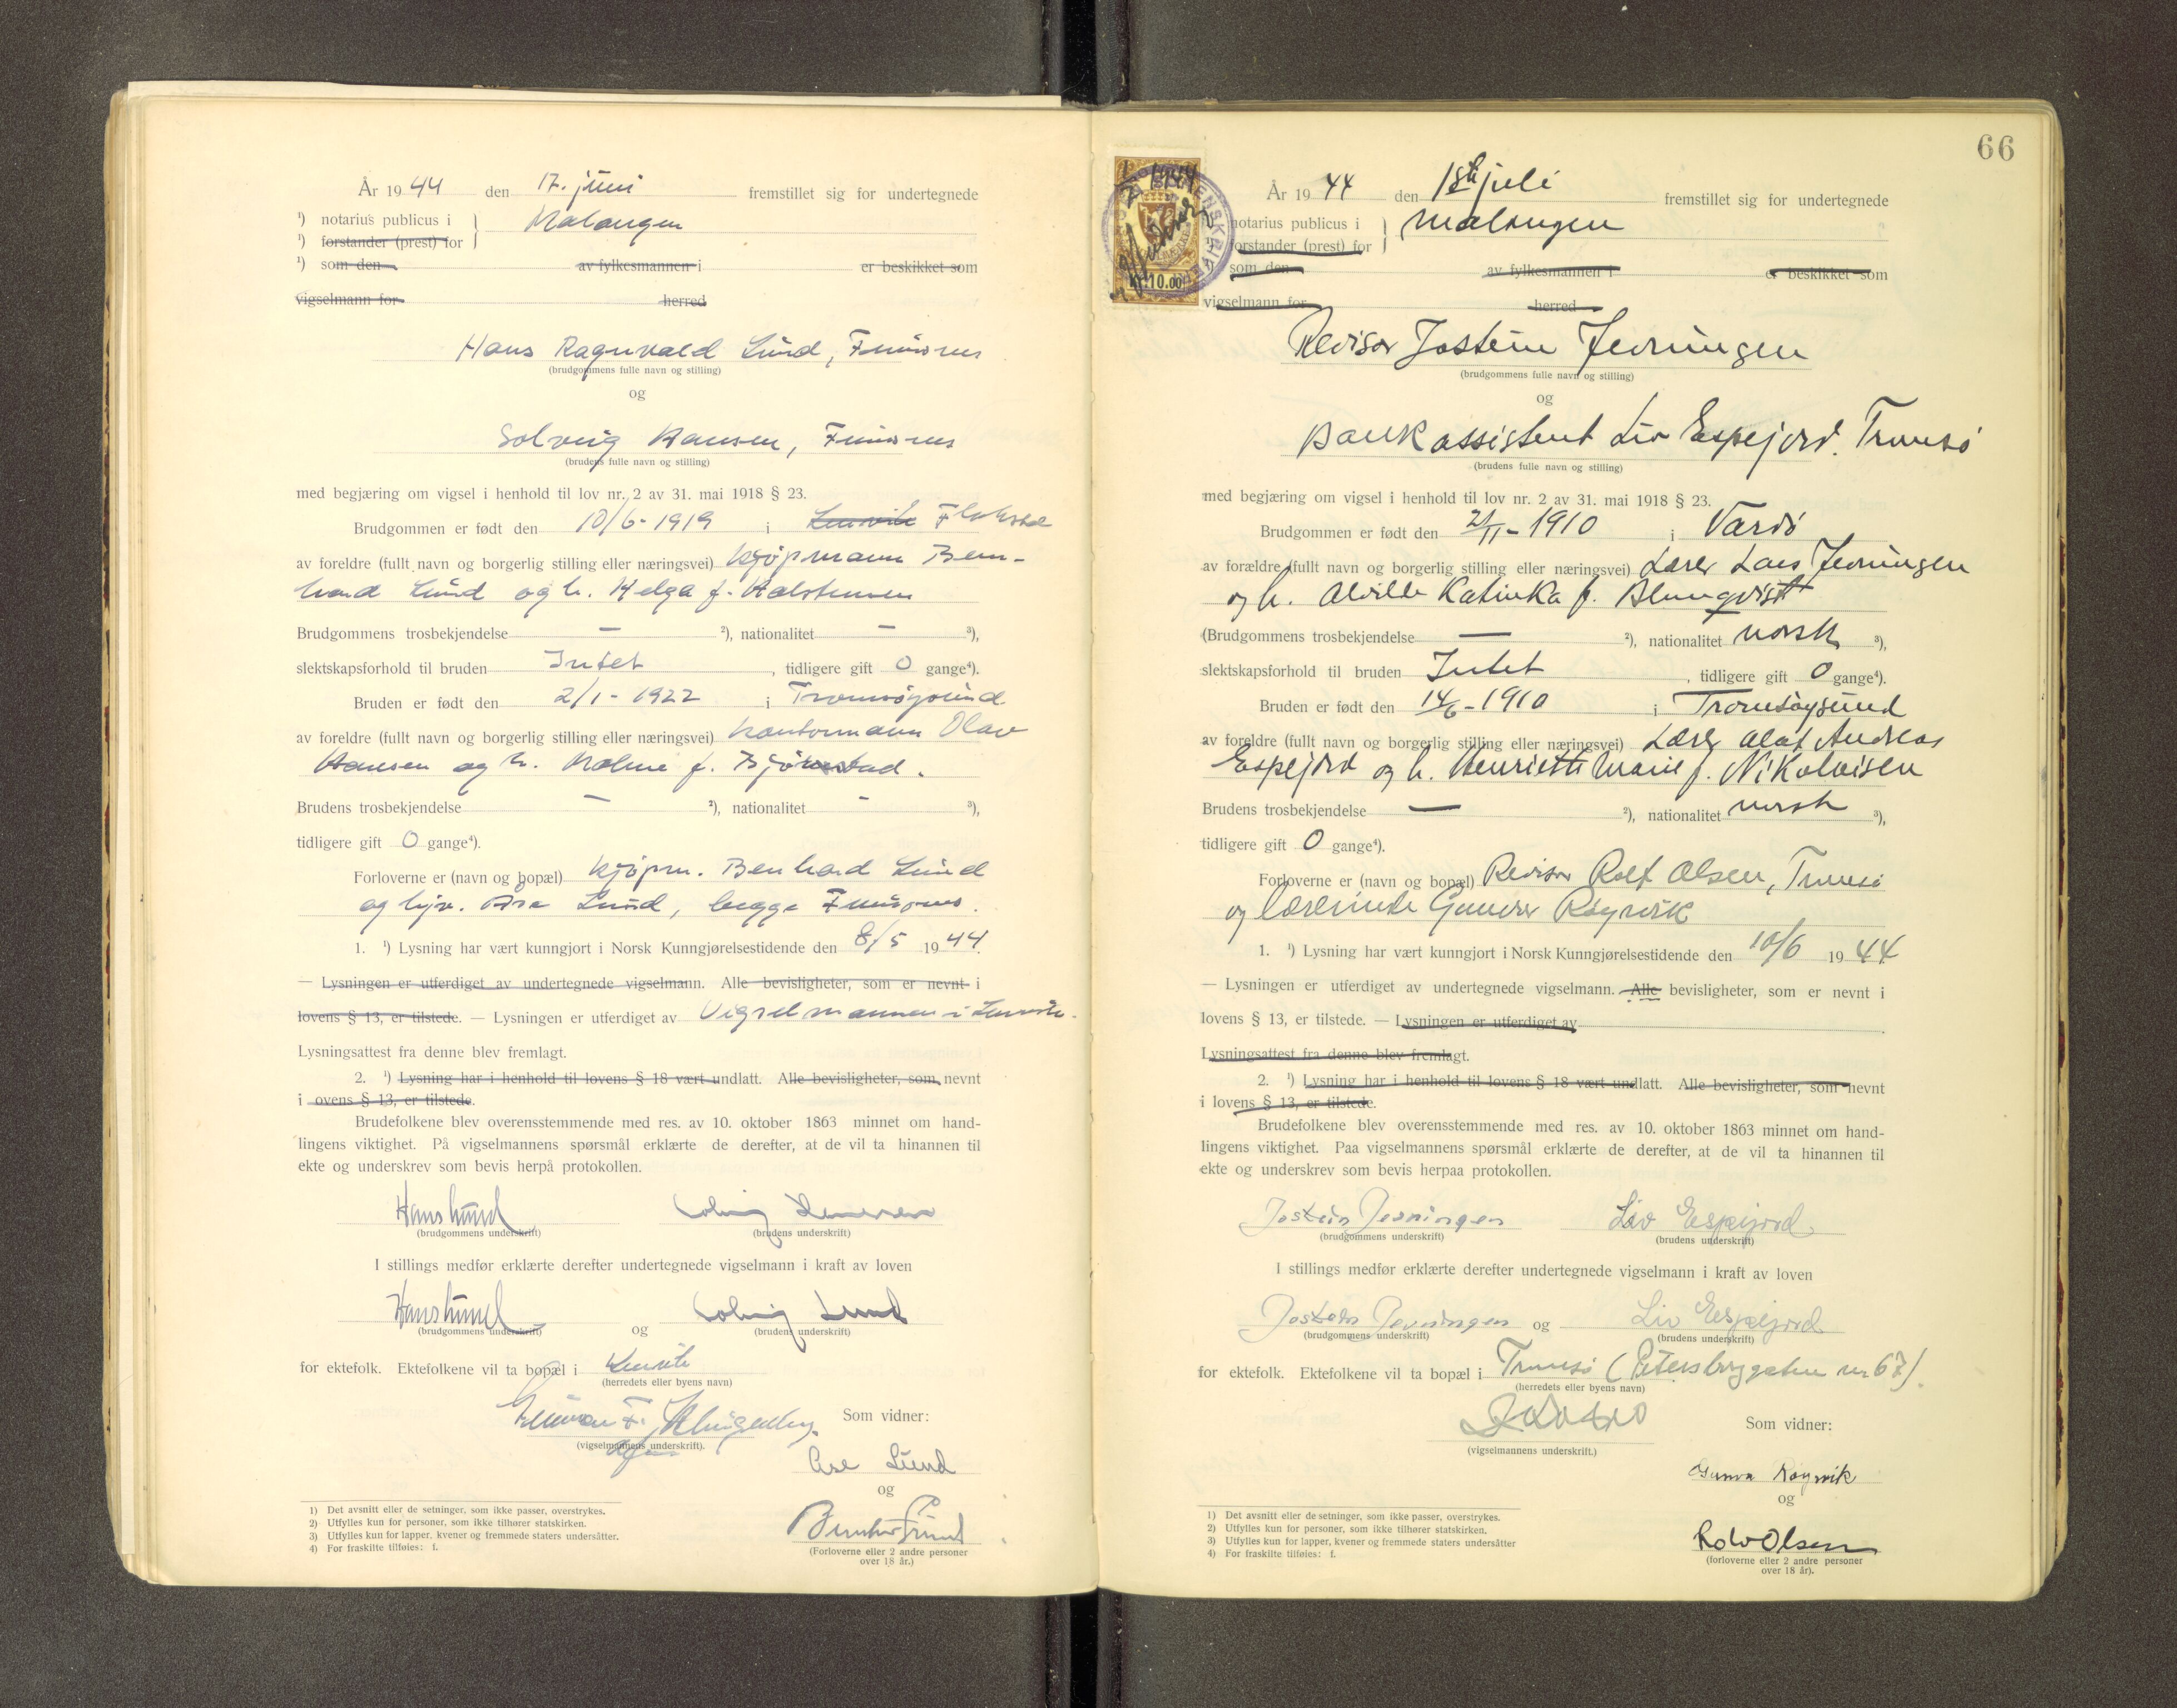 År 1944 den 17. juni fremstillet sig for undertegnede
1) notarius publicus i Malangen
1) forstander (prest) for
1) som den av fylkesmannen i er beskikket som
vigselmann for herred
Hans Ragnvald Lund, Finnsnes
(brudgommens fulle navn og stilling)
og
Solveig Hansen, Finnsnes
(brudens fulle navn og stilling)
med begjæring om vigsel i henhold til lov nr. 2 av 31. mai 1918 § 23.
Brudgommen er født den 10/6-1919 i Lenvik
av foreldre (fullt navn og borgerlig stilling eller næringsvei) Kjøpmann Bern-
hard Lund og h. Helga f.
Brudgommens trosbekjendelse — 2), nationalitet — 3),
slektskapsforhold til bruden Intet, tidligere gift 0 gange4).
Bruden er født den 2/1-1922 i Tromsøysund
av foreldre (fullt navn og borgerlig stilling eller næringsvei) Kontormann Olav
Hansen og h. f.
Brudens trosbekjendelse — 2), nationalitet - 3),
tidligere gift 0 gange4).
Forloverne er (navn og bopæl) Kjøpm. Bernhard Lund
og Lund, begge Finnsnes.
1. 1) Lysning har vært kunngjort i Norsk Kunngjørelsestidende den 8/5 1944.
— Lysningen er utferdiget av undertegnede vigselmann. Alle bevisligheter, som er nevnt i
lovens § 13, er tilstede. — Lysningen er utferdiget av Vigselmannen i Lenvik.
Lysningsattest fra denne blev fremlagt.
2. 1) Lysning har i henhold til lovens § 18 vært undlatt. Alle bevisligheter, som nevnt
i ovens § 13, er tilstede.
Brudefolkene blev overensstemmende med res. av 10. oktober 1863 minnet om hand-
lingens viktighet. På vigselmannens spørsmål erklærte de derefter, at de vil ta hinannen til
ekte og underskrev som bevis herpå protokollen.
Hans Lund Solveig Hansen
(brudgommens underskrift) (brudens underskrift)
I stillings medfør erklærte derefter undertegnede vigselmann i kraft av loven
Hans Lund og Solveig Lund
(brudgommens underskrift) (brudens underskrift)
for ektefolk. Ektefolkene vil ta bopæl i Lenvik
(herredets eller byens navn)
Som vidner:
(vigselmannens underskrift).
Åse Lund
og
Bernhard Lund
(Forloverne eller 2 andre personer
over 18 år.)
1) Det avsnitt eller de setninger, som ikke passer, overstrykes.
2) Utfylles kun for personer, som ikke tilhører statskirken.
3) Utfylles kun for lapper, kvener og fremmede staters undersåtter.
4) For fraskilte tilføies: f.
66
10.00
År 1944 den 18 juli fremstillet sig for undertegnede
notarius publicus i Malangen
forstander (prest) for
som den av fylkesmannen i er beskikket som
vigselmann for herred
Revisor Jostein Jevningen
(brudgommens fulle navn og stilling)
og
Bankassistent Liv Espejord. Tromsø
(brudens fulle navn og stilling)
med begjæring om vigsel i henhold til lov nr. 2 av 31. mai 1918 § 23.
Brudgommen er født den 21/11-1910 i Vardø
av forældre (fullt navn og borgerlig stilling eller næringsvei) Lærer Lars Jevningen
og h. Alvilde Katinka f. Blumqvist
(Brudgommens trosbekjendelse — 2), nationalitet norsk 3),
slektskapsforhold til bruden Intet, tidligere gift 0 gange4).
Bruden er født den 14/6-1910 i Tromsøysund
av foreldre (fullt navn og borgerlig stilling eller næringsvei) Lærer Olaf Andreas
Espejord og h. Henriette Marie f. Nikolaisen
Brudens trosbekjendelse — 2), nationalitet norsk 3),
tidligere gift 0 gange4).
Forloverne er (navn og bopæl) Revisor Rolf Olsen, Tromsø
og lærerinde Gunvor Røyrvik
1. 1) Lysning har vært kunngjort i Norsk Kunngjørelsestidende den 10/6 1944
— Lysningen er utferdiget av undertegnede vigselmann. Alle bevisligheter, som er nevnt i
lovens § 13, er tilstede. — Lysningen er utferdiget av
Lysningsattest fra denne blev fremlagt.
2. 1) Lysning har i henhold til lovens § 18 vært undlatt. Alle bevisligheter, som nevnt
i lovens § 13, er tilstede.
Brudefolkene blev overensstemmende med res. av 10. oktober 1863 minnet om hand-
lingens viktighet. Paa vigselmannens spørsmål erklærte de derefter, at de vil ta hinannen til
ekte og underskrev som bevis herpaa protokollen.
Jostein Jevningen Liv Espejord
(brudgommens underskrift) (brudens underskrift)
I stillings medfør erklærte derefter undertegnede vigselmann i kraft av loven
Jostein Jevningen og Liv Espejord
(brudgommens underskrift) (brudens underskrift)
for ektefolk. Ektefolkene vil ta bopæl i Tromsø (Petersborggaten nr 67).
(herredets eller byens navn)
Som vidner:
(vigselmannens underskrift.)
Gunvor Røyrvik
og
Rolv Olsen
(forloverne eller 2 andre personer
over 18 år).
1) Det avsnitt eller de setninger, som ikke passer, overstrykes.
2) Utfylles kun for personer, som ikke tilhører statskirken.
3) Utfylles kun for lapper, kvener og fremmede staters undersåtter
4) For fraskilte tilføies: f.